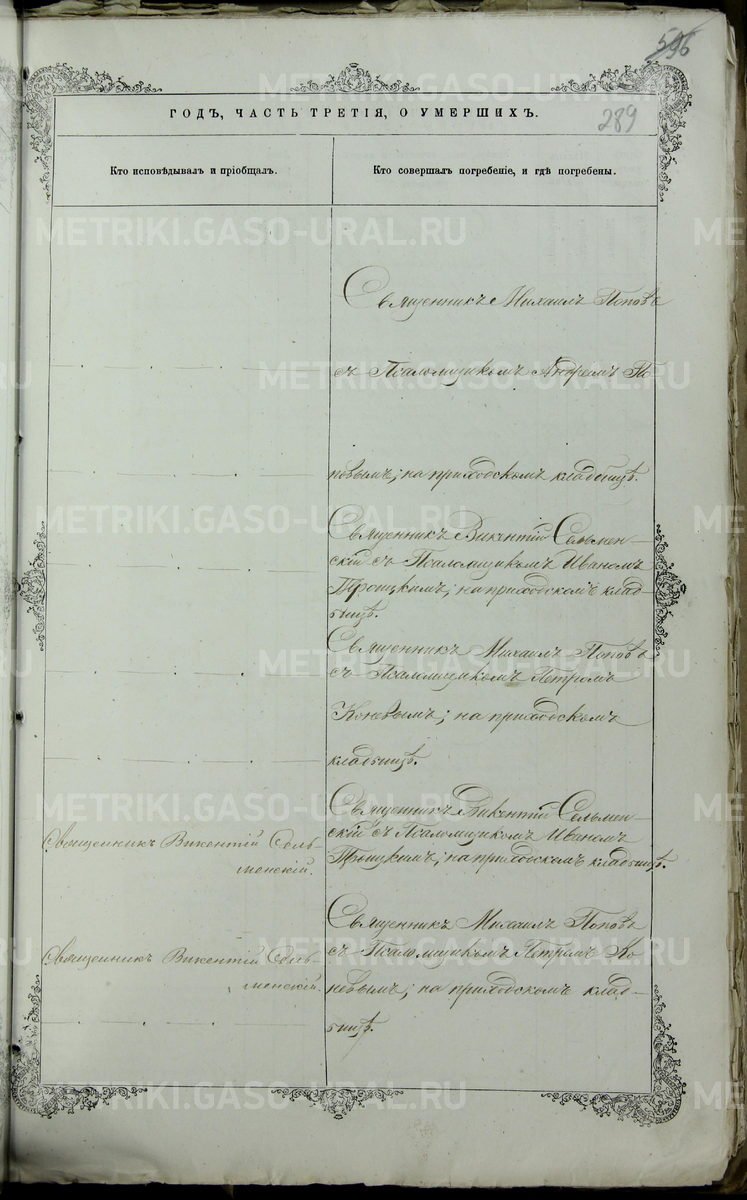 596
289
ГОДЪ, ЧАСТЬ ТРЕТІЯ, О УМЕРШИХЪ.
Кто исповѣдывалъ и пріобщалъ.
Кто совершалъ погребеніе, и гдѣ погребены.
METRIKI.GASO-URAL.RU
Священникъ Михаилъ Поповъ
съ Псаломщикомъ Андреемъ По
повымъ; на приходскомъ кладбищѣ.
Священникъ Викентій Сельмен-
скій съ Псаломщикомъ Иваномъ
Троицкимъ; на приходскомъ клад-
бищѣ.
Священникъ Михаилъ Поповъ
съ Псаломщикомъ Петромъ
Коневымъ; на приходскомъ
кладбищѣ.
Священникъ Викентій Сель-
менскій.
Священникъ Викентій Сельмен-
скій съ Псаломщикомъ Иваномъ
Троицкимъ; на приходскомъ кладбищѣ.
Священникъ Викентій Сель-
менскій.
Священникъ Михаилъ Поповъ
съ Псаломщикомъ Петромъ Ко
невымъ; на приходскомъ клад-
бищѣ.